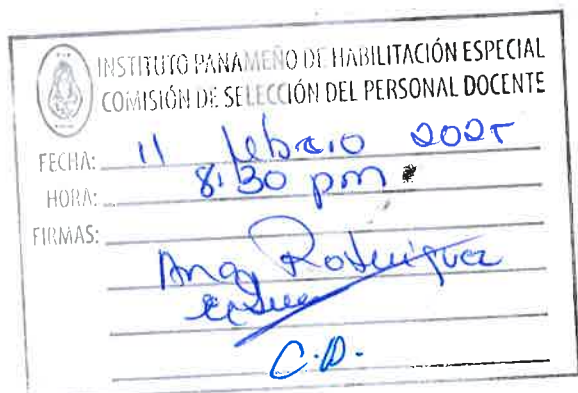 INSTITUTO PANAMEÑO DE HABILITACIÓN ESPECIAL
COMISIÓN DE SELECCIÓN DEL PERSONAL DOCENTE
FECHA: 11 febrero 2025
HORA: 8:30 pm
FIRMAS:
Ana Rodríguez
C.D.